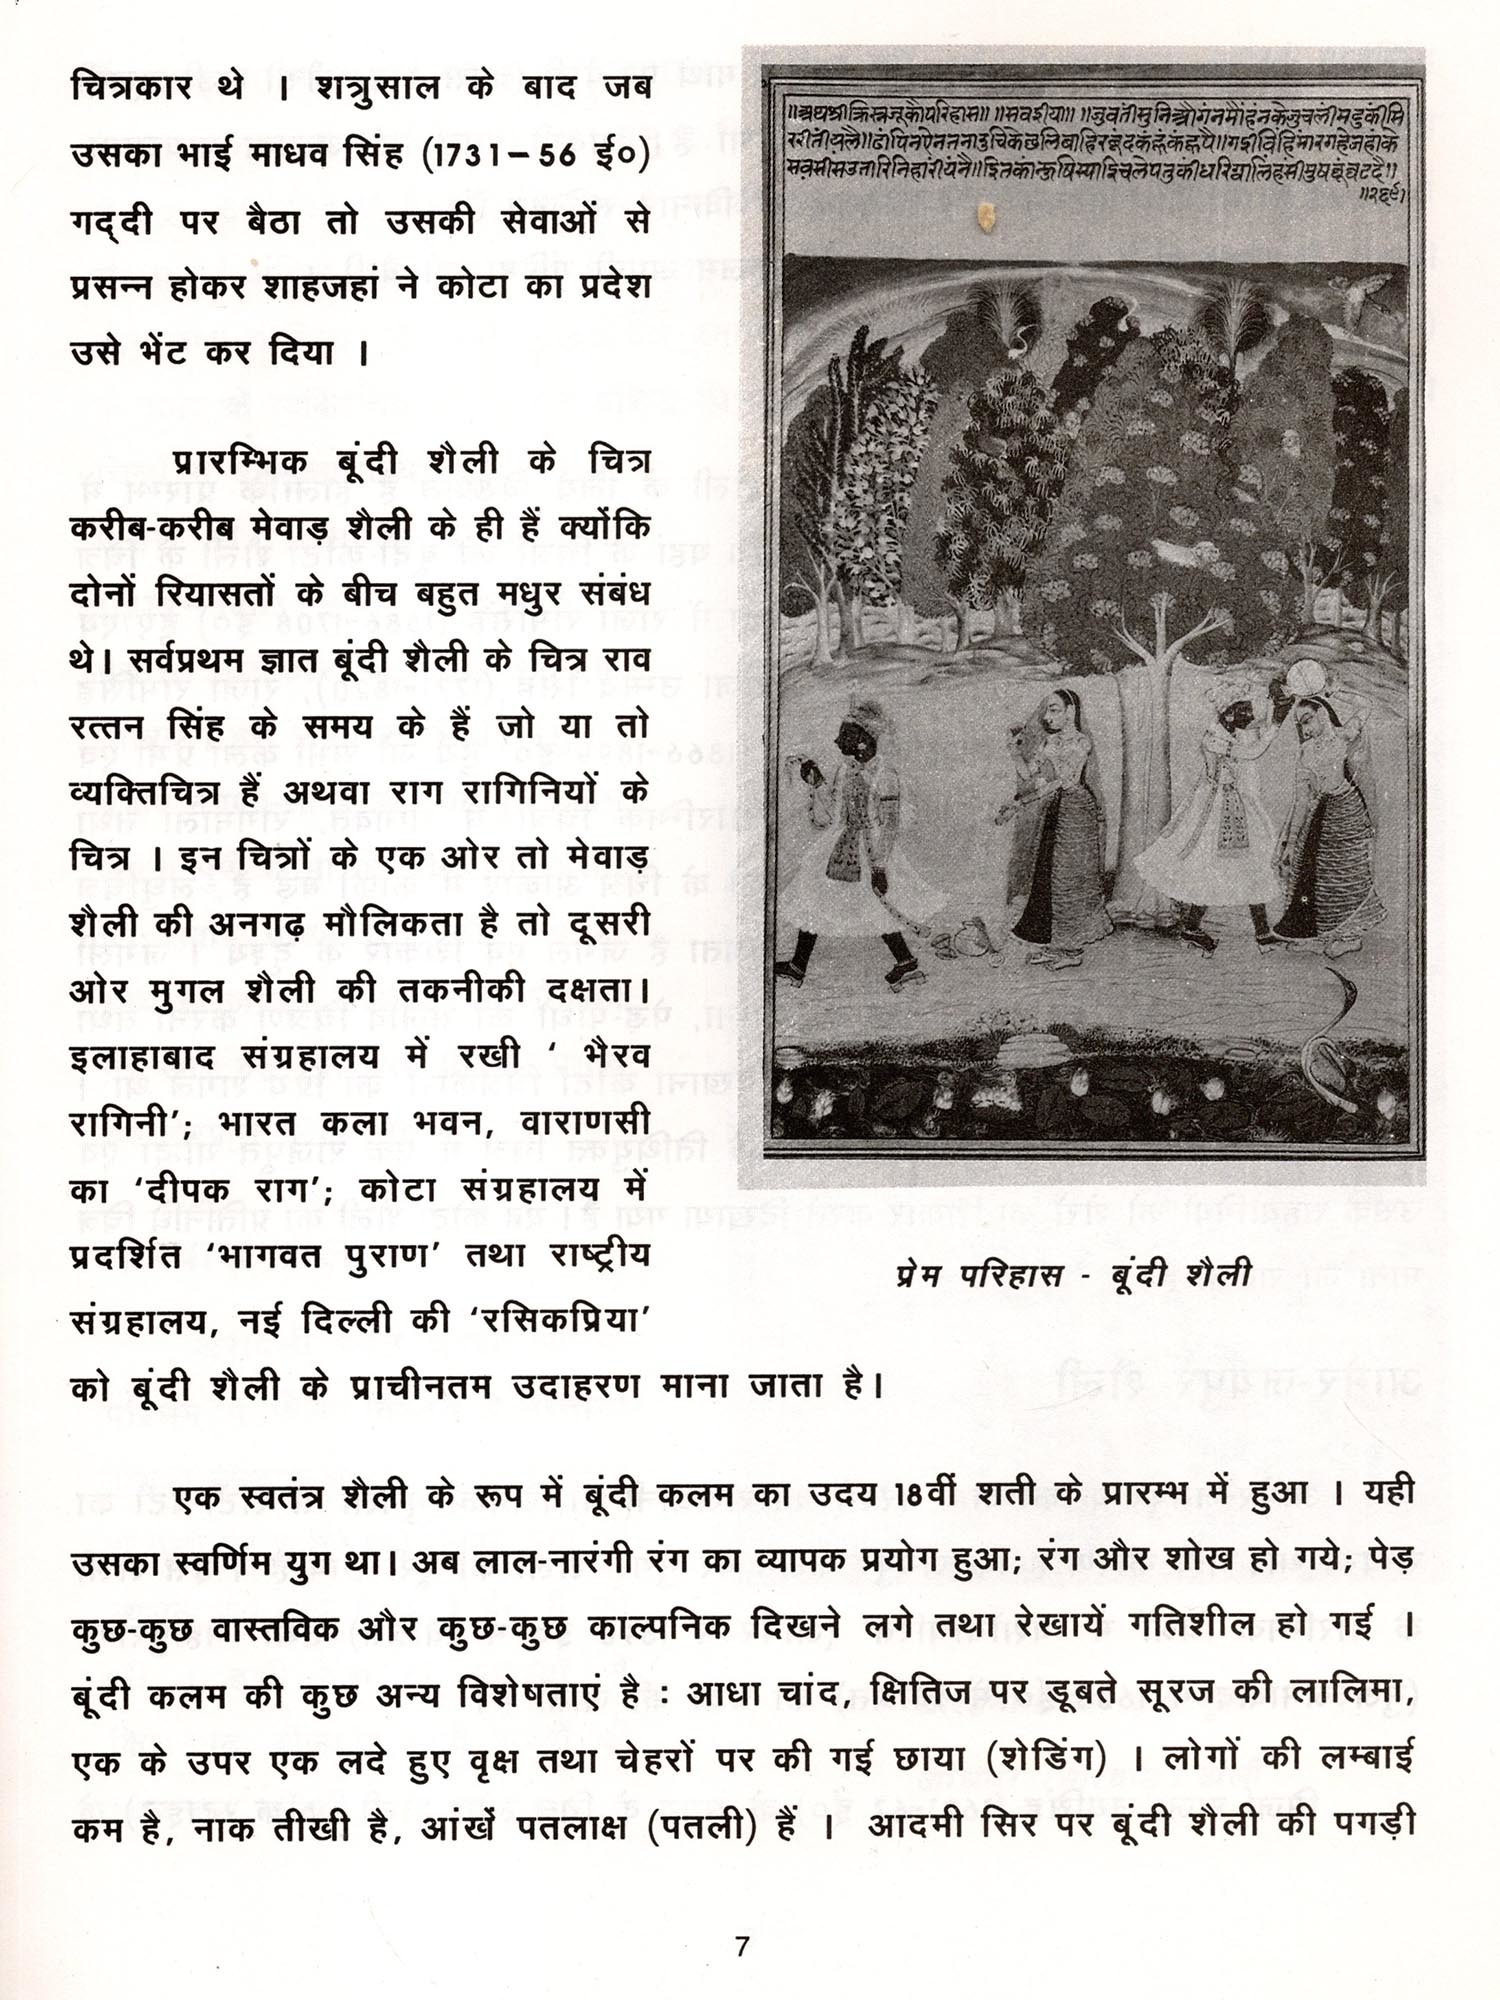 चित्रकार थे । शत्रुसाल के बाद जब
उसका भाई माधव सिंह (1731–56 ई०)
गद्दी पर बैठा तो उसकी सेवाओं से
प्रसन्न होकर शाहजहां ने कोटा का प्रदेश
उसे भेंट कर दिया ।
प्रारम्भिक बूंदी शैली के चित्र
करीब-करीब मेवाड़ शैली के ही हैं क्योंकि
दोनों रियासतों के बीच बहुत मधुर संबंध
थे। सर्वप्रथम ज्ञात बूंदी शैली के चित्र राव
रत्तन सिंह के समय के हैं जो या तो
व्यक्तिचित्र हैं अथवा राग रागिनियों के
चित्र । इन चित्रों के एक ओर तो मेवाड़
शैली की अनगढ़ मौलिकता है तो दूसरी
ओर मुगल शैली की तकनीकी दक्षता।
इलाहाबाद संग्रहालय में रखी ‘ भैरव
रागिनी’; भारत कला भवन, वाराणसी
का ‘दीपक राग’; कोटा संग्रहालय में
प्रदर्शित ‘भागवत पुराण’ तथा राष्ट्रीय
संग्रहालय, नई दिल्ली की ‘रसिकप्रिया’
को बूंदी शैली के प्राचीनतम उदाहरण माना जाता है।
प्रेम परिहास - बूंदी शैली
एक स्वतंत्र शैली के रूप में बूंदी कलम का उदय 18वीं शती के प्रारम्भ में हुआ । यही
उसका स्वर्णिम युग था। अब लाल-नारंगी रंग का व्यापक प्रयोग हुआ; रंग और शोख हो गये; पेड़
कुछ-कुछ वास्तविक और कुछ-कुछ काल्पनिक दिखने लगे तथा रेखायें गतिशील हो गई ।
बूंदी कलम की कुछ अन्य विशेषताएं है : आधा चांद, क्षितिज पर डूबते सूरज की लालिमा,
एक के उपर एक लदे हुए वृक्ष तथा चेहरों पर की गई छाया (शेडिंग) । लोगों की लम्बाई
कम है, नाक तीखी है, आंखें पतलाक्ष (पतली) हैं । आदमी सिर पर बूंदी शैली की पगड़ी
7